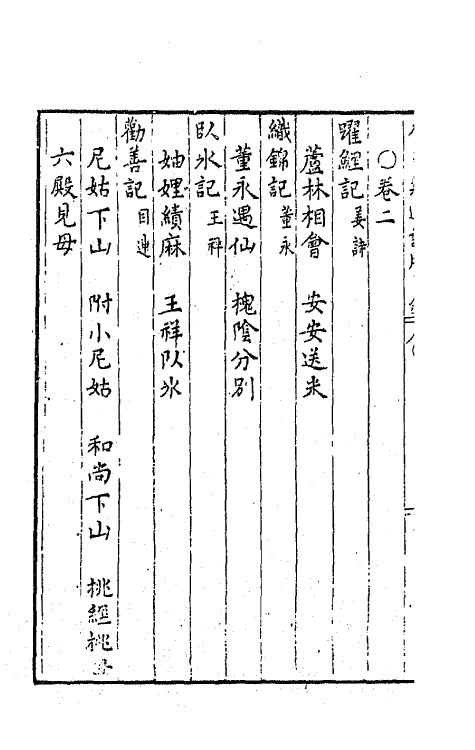 〇卷二
躍鯉記 姜詩
蘆林相會 安安送米
織錦記 董永
董永遇仙 槐陰分別
臥氷記 王祥
妯娌績麻 王祥臥氷
勸善記 目連
尼姑下山 附小尼姑 和尚下山 挑經挑
六殿見母